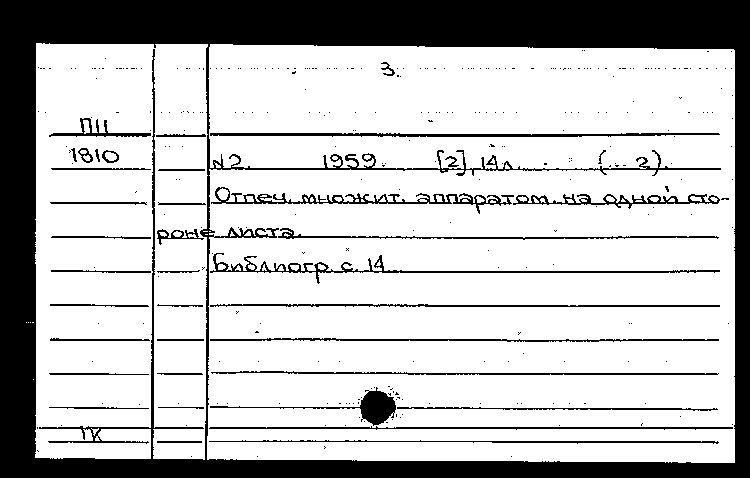 3.
П11
1810 №2. 1959. [2], 14л. (... 2).
Отпеч. множит. аппаратом на одной сто-
роне листа.
Библиогр. с. 14
1К